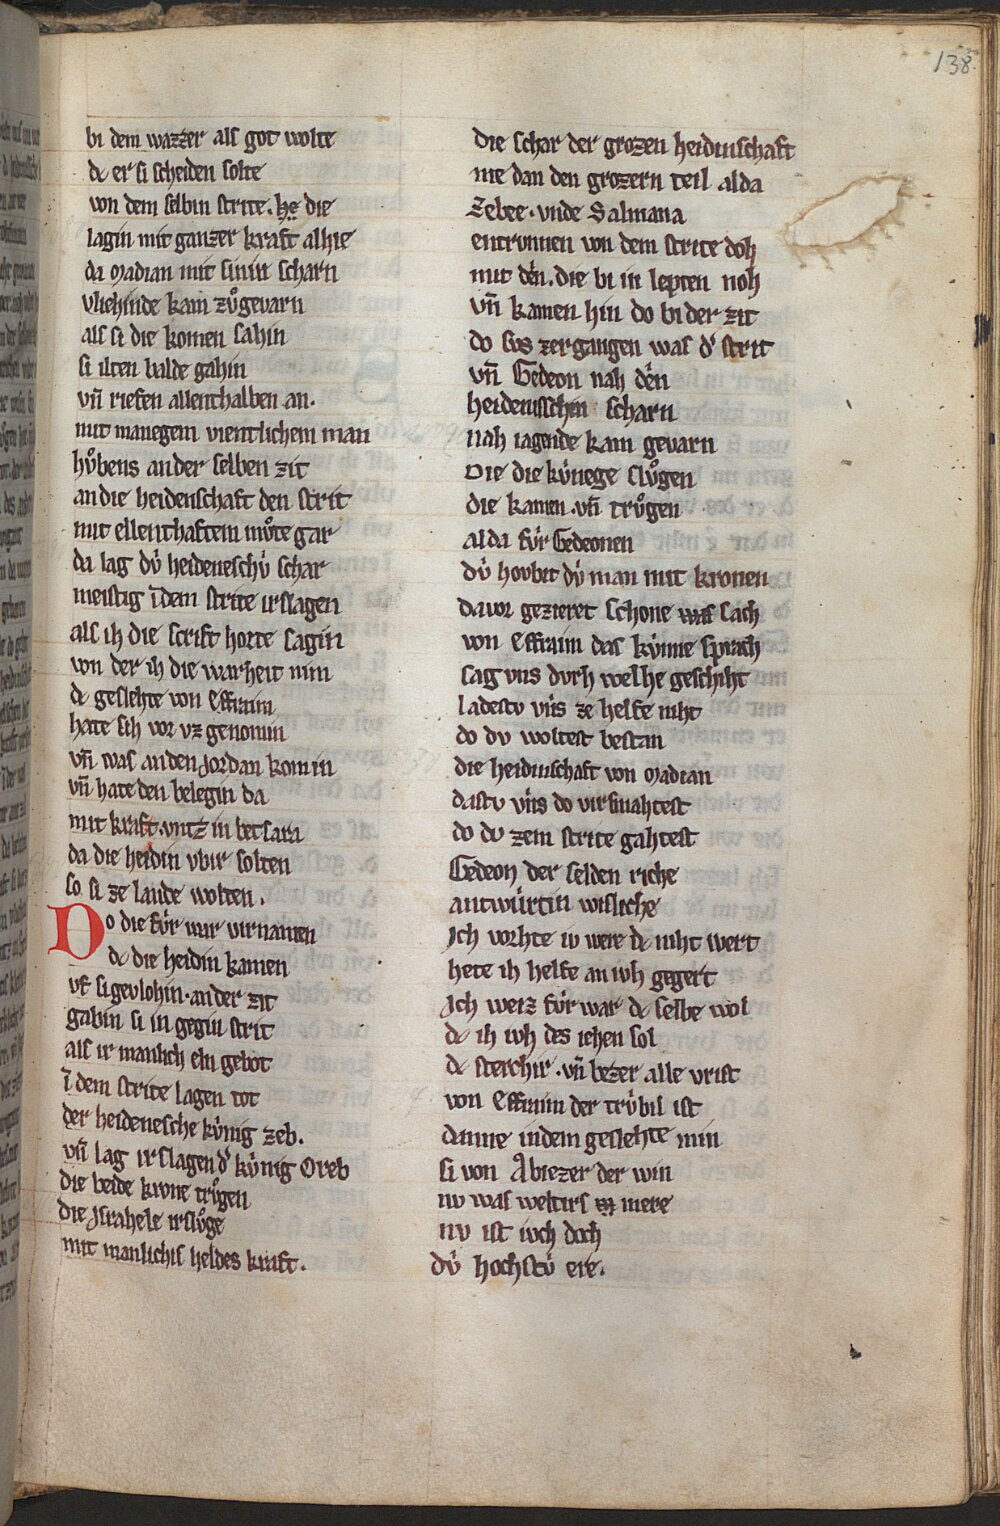 138
bi dem wazzer als got wolte
dc er si scheiden solte
von dem selbin strite. he die
lagin mit ganzer kraft alhie
da Madian mit sinin scharn
vliehinde kam zuͦgevarn
als si die komen sahin
si ilten balde gahin
vn̄ riefen allenthalben an.
mit manegem vientlichem man
huͦbens an der selben zit
an die heidenschaft den strit
mit ellenthaftem muͦte gar
da lag dv́ heideneschv́ schar
meistig ī dem strite irslagen
als ih die scrift horte sagin
von der ih die warheit nim
dc geslehte von Effraim
hate sih vor vz genomin
vn̄ was an den Jordan komin
vn̄ hate den belegin da
mit kraft. vntz in betsara
da die heidin vbir solten
so si ze lande wolten.
Do die fv́r war virnamen
dc die heidin kamen
vf si gevlohin. an der zit
gabin si in gegin strit
als ir manlich ellin gebot
ī dem strite lagen tot
der heidenesche kv́nig zeb.
vn̄ lag irslagen d' kv́nig Oreb
die beide krone truͦgen
die Jsrahele irsluͦge
mit manlichis heldes kraft.
Die schar der grozen heidinschaft
nie dan den grozern teil alda
Zebee. vnde Salmana
entrvnnen von dem strite doh
mit den. die bi in lepten noh
vn̄ kamen hin do bi der zit
do svs zergangen was d' strit
vn̄ Gedeon nah den
heidenisschen scharn
nah iagende kam gevarn
Die die kv́nege sluͦgen
die kamen. vn̄ truͦgen
alda fv́r Gedeonen
dv́ hovbit dv́ man mit kronen
da vor gezieret schone was sach
von Effraim das kv́nne sprach
sag vns dvrh welhe geschiht
ladestv v́ns ze helfe niht
do dv woltest bestan
die heidinschaft von Madian
dastv v́ns do virsmahtest
do dv zem strite gahtest
Gedeon der selden riche
antwv́rtin wisliche
Jch vorhte iv were dc niht wert
hete ih helfe an ivh gegert
Jch weiz fv́r war dc selbe wol
dc ih ivh des iehen sol
dc sterchir. vn̄ bezer alle vrist
von Effraim der trv́bil ist
danne in dem geslehte min
si von Abiezer der win
nv was weltirs mere
nv ist ivch doch
dv́ hochstv́ ere.